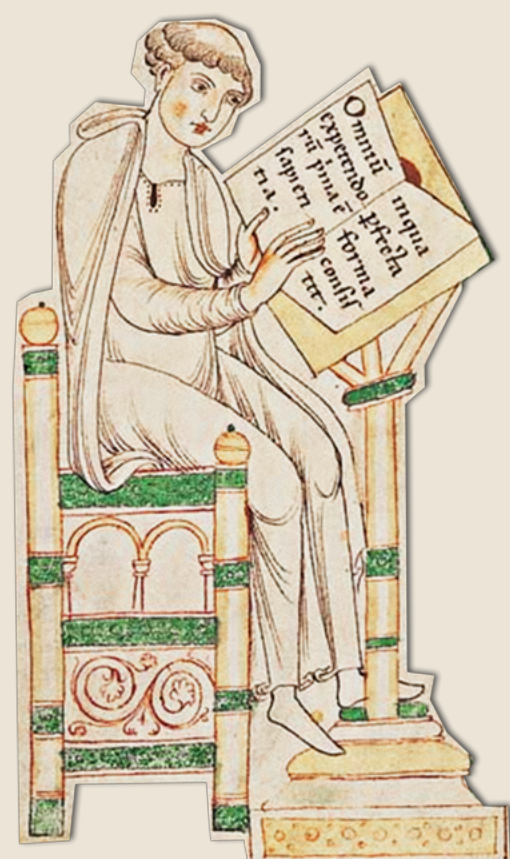 Omniū
expetendo
rū pͥma ē
sapien
tia.
inqua
ꝑfecta
forma
consis
tit.